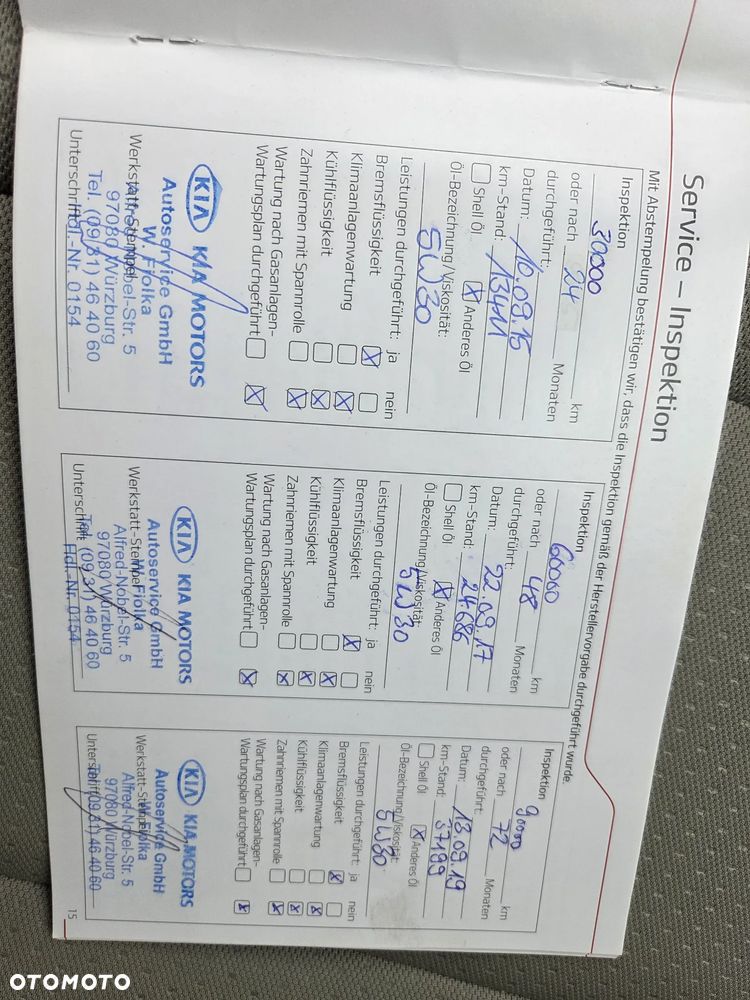 Service – Inspektion
Mit Abstempelung bestätigen wir, dass die Inspektion gemäß der Herstellervorgabe durchgeführt wurde.
Inspektion
30000 km
oder nach 24 Monaten
durchgeführt:
Datum: 10.09.15
km-Stand: 13411
Shell Öl X Anderes Öl
Öl-Bezeichnung/Viskosität:
5W30
Leistungen durchgeführt: ja nein
Bremsflüssigkeit X
Klimaanlagenwartung X
Kühlflüssigkeit X
Zahnriemen mit Spannrolle X
Wartung nach Gasanlagen-
Wartungsplan durchgeführt X
KIA KIA MOTORS
Autoservice GmbH
W. Fiolka
Werkstatt-Stempel
Alfred-Nobel-Str. 5
97080 Würzburg
Tel. (09 31) 46 40 60
Unterschrift
Hdl.-Nr. 0154
Inspektion
60000 km
oder nach 48 Monaten
durchgeführt:
Datum: 22.09.17
km-Stand: 24686
Shell Öl X Anderes Öl
Öl-Bezeichnung/Viskosität:
5W30
Leistungen durchgeführt: ja nein
Bremsflüssigkeit X
Klimaanlagenwartung X
Kühlflüssigkeit X
Zahnriemen mit Spannrolle X
Wartung nach Gasanlagen-
Wartungsplan durchgeführt X
KIA KIA MOTORS
Autoservice GmbH
W. Fiolka
Werkstatt-Stempel
Alfred-Nobel-Str. 5
97080 Würzburg
Tel. (09 31) 46 40 60
Unterschrift
Hdl.-Nr. 0154
Inspektion
90000 km
oder nach 72 Monaten
durchgeführt:
Datum: 13.09.19
km-Stand: 37199
Shell Öl X Anderes Öl
Öl-Bezeichnung/Viskosität:
5W30
Leistungen durchgeführt: ja nein
Bremsflüssigkeit X
Klimaanlagenwartung X
Kühlflüssigkeit X
Zahnriemen mit Spannrolle X
Wartung nach Gasanlagen-
Wartungsplan durchgeführt X
KIA KIA MOTORS
Autoservice GmbH
W. Fiolka
Werkstatt-Stempel
Alfred-Nobel-Str. 5
97080 Würzburg
Tel. (09 31) 46 40 60
Unterschrift
15
OTOMOTO